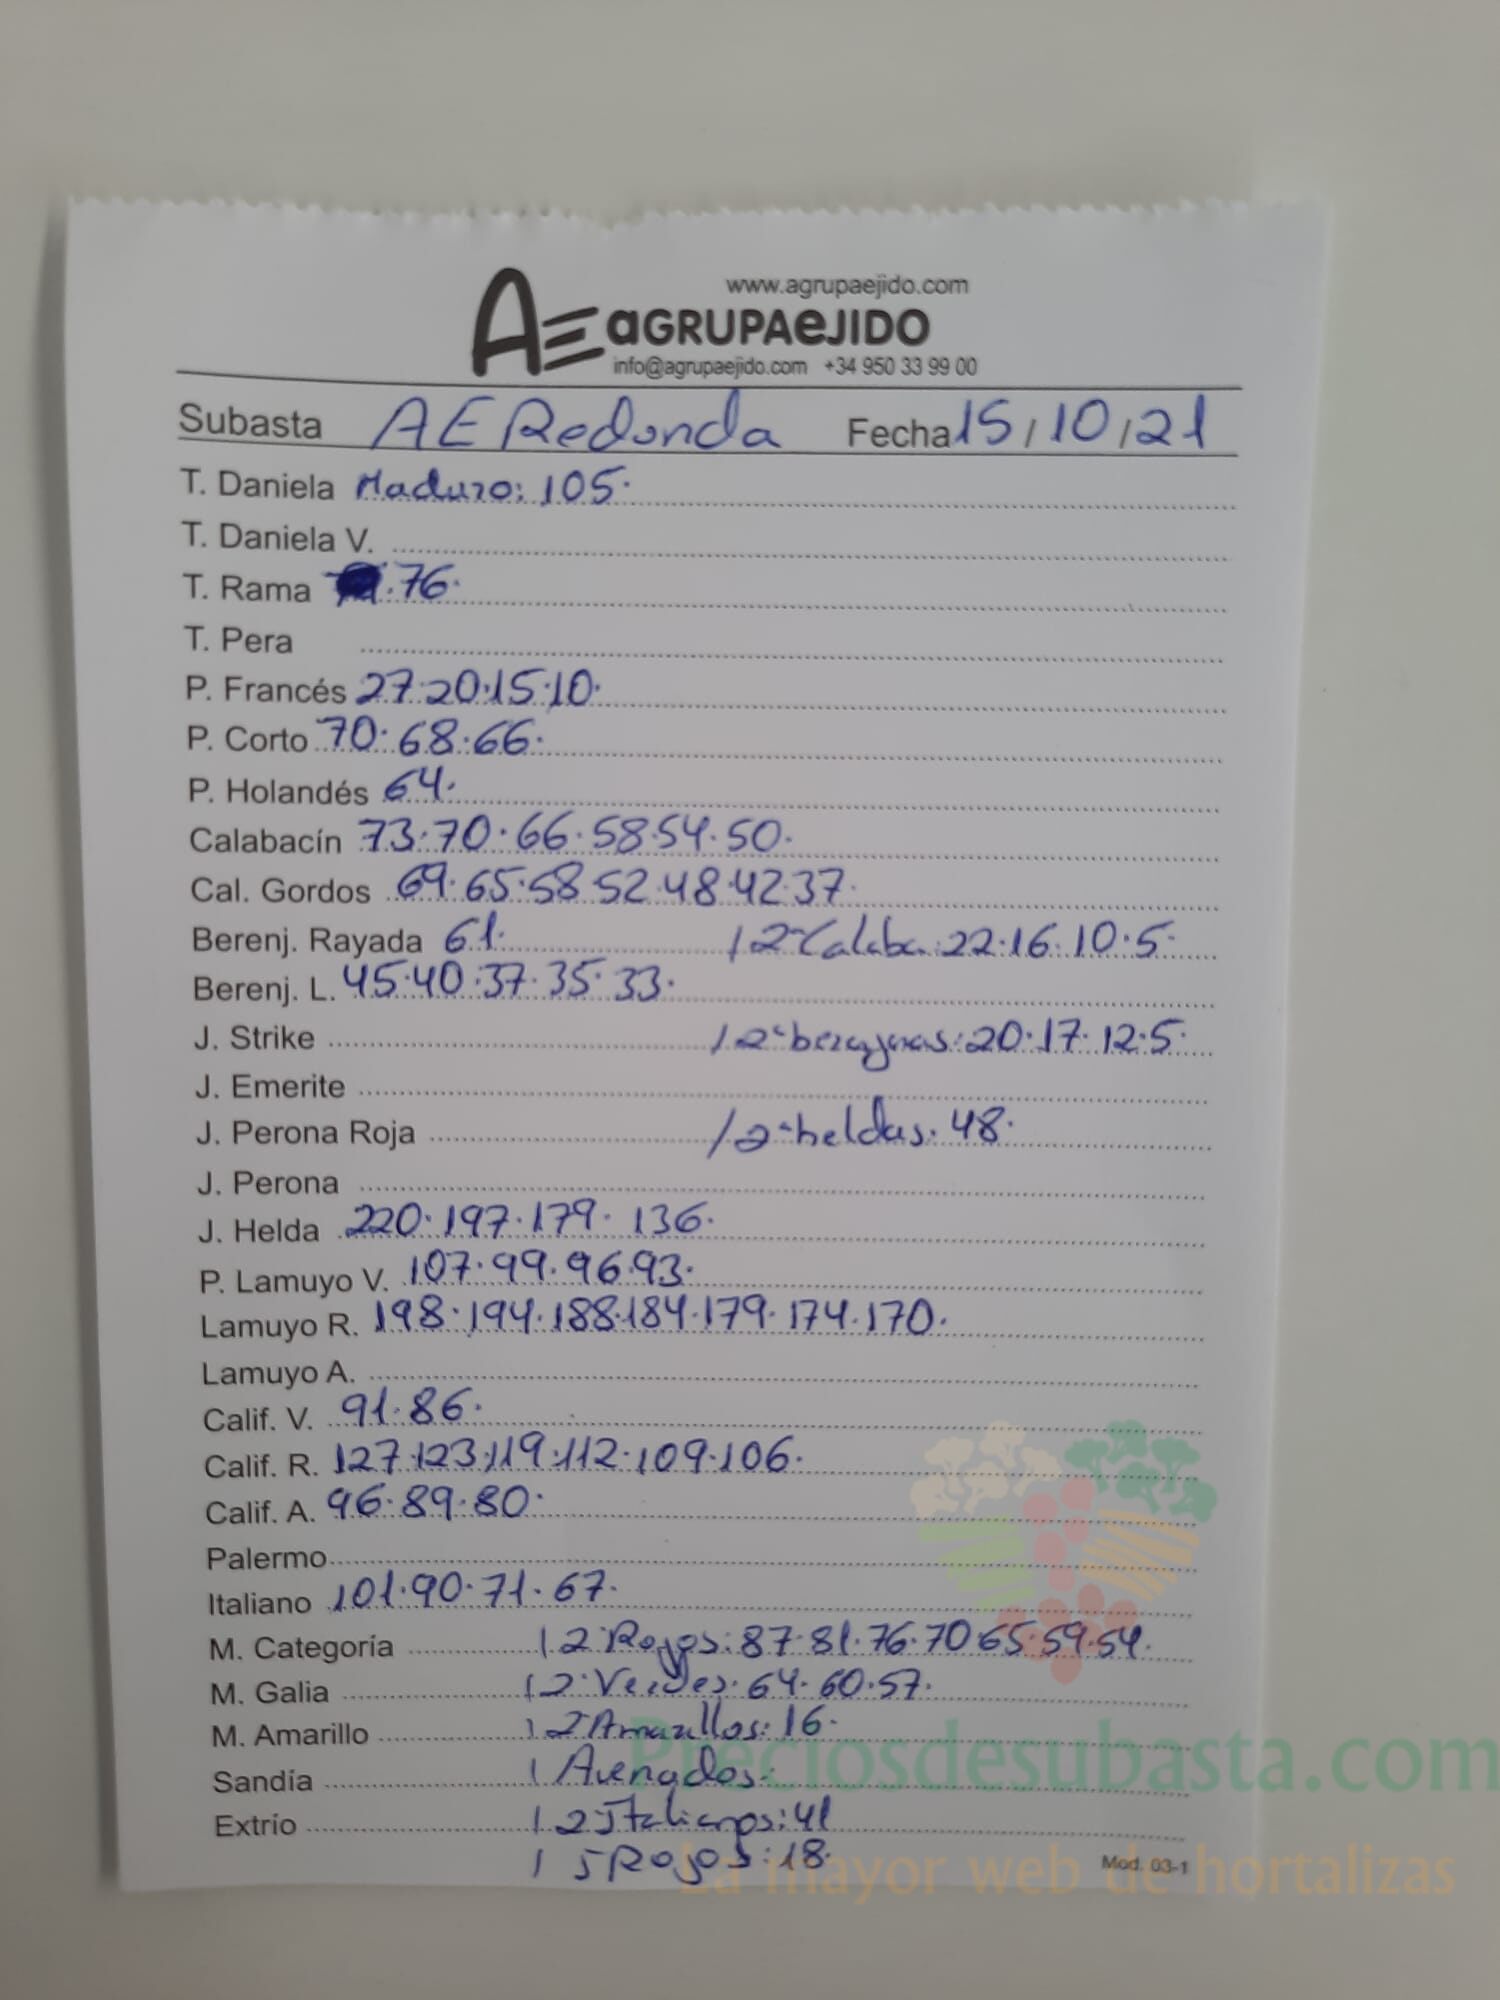 www.agrupaejido.com
AE aGRUPAeJIDO
info@agrupaejido.com +34 950 33 99 00
Subasta AE Redonda Fecha 15/10/21
T. Daniela Maduro: 105.
T. Daniela V.
T. Rama .76.
T. Pera
P. Francés 27.20.15.10.
P. Corto 70.68.66.
P. Holandés 64.
Calabacín 73.70.66.58.54.50.
Cal. Gordos 69.65.58.52.48.42.37.
Berenj. Rayada 61. / 2ª Calaba: 22.16.10.5.
Berenj. L. 45.40.37.35.33.
J. Strike / 2ª berenjenas: 20.17.12.5.
J. Emerite
J. Perona Roja / 2ª heldas. 48.
J. Perona
J. Helda 220.197.179.136.
P. Lamuyo V. 107.99.96.93.
Lamuyo R. 198.194.188.184.179.174.170.
Lamuyo A.
Calif. V. 91.86.
Calif. R. 127.123.119.112.109.106.
Calif. A. 96.89.80.
Palermo
Italiano 101.90.71.67.
M. Categoría / 2ª Rojos: 87.81.76.70.65.59.54.
M. Galia / 2ª Verdes. 64.60.57.
M. Amarillo / 2 Amarillos: 16.
Sandía / Asengados.
Extrío / 2 Italianos: 41
/ 5 Rojos: 18.
Mod. 03-1
Preciosdesubasta.com
La mayor web de hortalizas